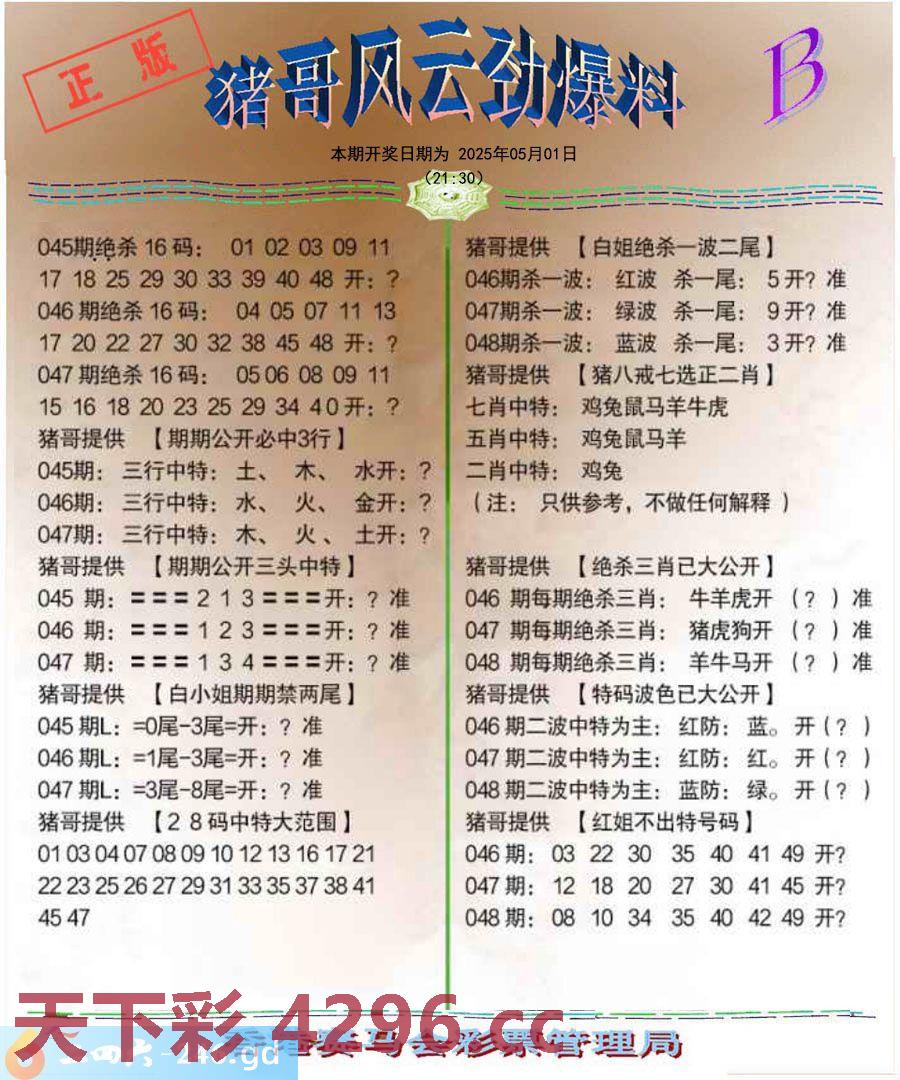 正版
猪哥风云劲爆料
B
本期开奖日期为 2025年05月01日
(21:30)
045期绝杀16码： 01 02 03 09 11
17 18 25 29 30 33 39 40 48 开：?
046 期绝杀16码： 04 05 07 11 13
17 20 22 27 30 32 38 45 48 开：?
047 期绝杀16码： 05 06 08 09 11
15 16 18 20 23 25 29 34 40 开：?
猪哥提供 【期期公开必中3行】
045期： 三行中特： 土、 木、 水开：?
046期： 三行中特： 水、 火、 金开：?
047期： 三行中特： 木、 火、 土开：?
猪哥提供 【期期公开三头中特】
045 期：〓〓〓２１３〓〓〓开：? 准
046 期：〓〓〓１２３〓〓〓开：? 准
047 期：〓〓〓１３４〓〓〓开：? 准
猪哥提供 【白小姐期期禁两尾】
045期L：=0尾-3尾=开：? 准
046期L：=1尾-3尾=开：? 准
047期L：=3尾-8尾=开：? 准
猪哥提供 【２８码中特大范围】
01 03 04 07 08 09 10 12 13 16 17 21
22 23 25 26 27 29 31 33 35 37 38 41
45 47
猪哥提供 【白姐绝杀一波二尾】
046期杀一波： 红波 杀一尾： 5 开? 准
047期杀一波： 绿波 杀一尾： 9 开? 准
048期杀一波： 蓝波 杀一尾： 3 开? 准
猪哥提供 【猪八戒七选正二肖】
七肖中特： 鸡兔鼠马羊牛虎
五肖中特： 鸡兔鼠马羊
二肖中特： 鸡兔
（注： 只供参考，不做任何解释 ）
猪哥提供 【绝杀三肖已大公开】
046 期每期绝杀三肖： 牛羊虎开 （? ）准
047 期每期绝杀三肖： 猪虎狗开 （? ）准
048 期每期绝杀三肖： 羊牛马开 （? ）准
猪哥提供 【特码波色已大公开】
046 期二波中特为主： 红防： 蓝。 开（? ）
047 期二波中特为主： 红防： 红。 开（? ）
048 期二波中特为主： 蓝防： 绿。 开（? ）
猪哥提供 【红姐不出特号码】
046 期： 03 22 30 35 40 41 49 开?
047 期： 12 18 20 27 30 41 45 开?
048 期： 08 10 34 35 40 42 49 开?
天下彩 4296.cc
马会彩票管理局